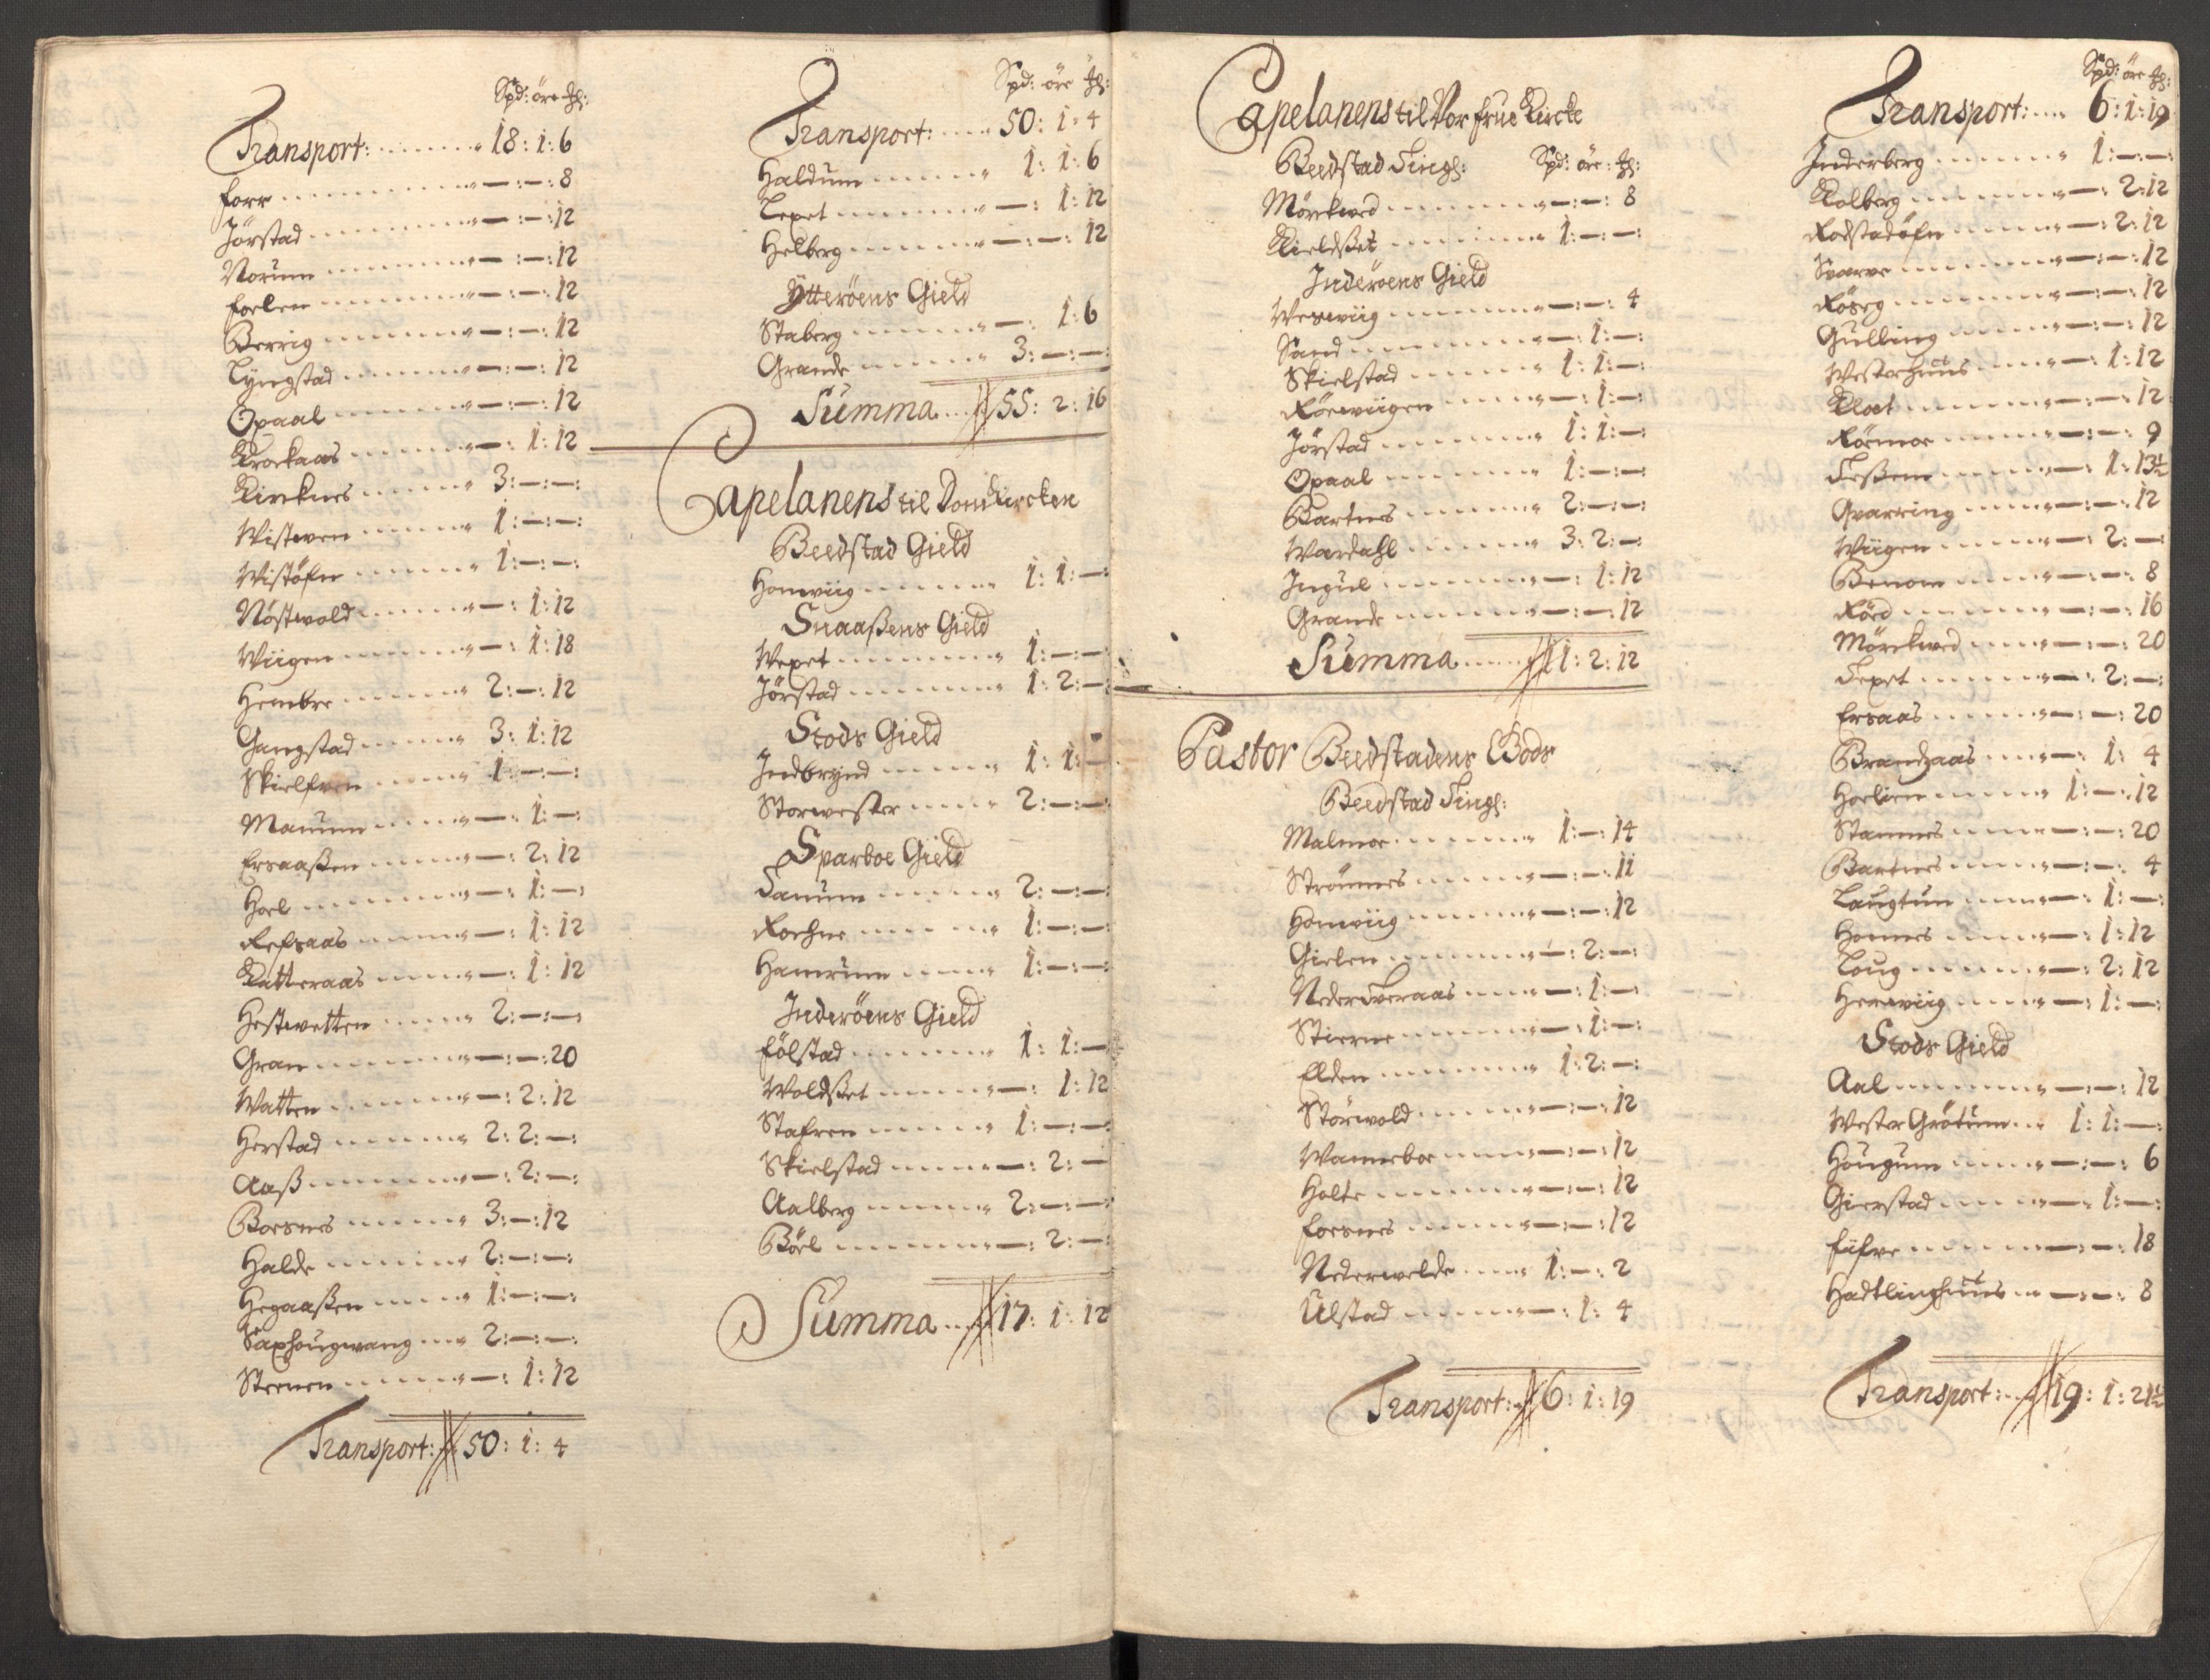 Spd: öre ℔:
Transport: 18: 1: 6
Forr —:—: 8
Jörstad —:—: 12
Norum —:—: 12
Foelen —:—: 12
Berrig —:—: 12
Lyngstad —:—: 12
Opaal —:—: 12
Krockaas —: 1: 12
Kirknes 3:—:—:
Wistwen 1:—:—:
Wistöfn 1:—:—:
Nöstwold —: 1: 12
Wiigen —: 1: 18
Hembre 2:—: 12
Gangstad 3: 1: 12
Skielfren 1:—:—:
Manum —: 1:—:
Ersaaßen —: 2: 12
Hoel —: 1:—:
Refsaas —: 1: 12
Katteraas —: 1: 12
Hestwetten 2:—:—:
Gran —:—: 20
Watten —: 2: 12
Herstad 2: 2:—:
Aaß —: 2:—:
Borsnes 3:—: 12
Halde 2:—:—:
Hegaaßen 1:—:—:
Saxhougwang 2:—:—:
Steenen —: 1: 12
Transport: 50: 1: 4
Spd: öre ℔:
Transport: 50: 1: 4
Haldum 1: 1: 6
Lexet —: 1: 12
Helberg —:—: 12
Ytteröens Gield
Staberg —: 1: 6
Grande 3:—:—:
Summa 55: 2: 16
Capelanens til Domkircken
Beedstad Gield
Honwiig 1: 1:—:
Snaaßens Gield
Wexet 1:—:—:
Jörstad 1: 2:—:
Stods Gield
Indbrynd 1: 1:—
Storwester 2:—:—:
Sparboe Gield
Sanum 2:—:—:
Roehne 1:—:—:
Hamrum 1:—:—:
Inderöens Gield
Fölstad 1: 1:—
Woldßet —: 1: 12
Stafren 1:—:—:
Skielstad —: 2:—
Aalberg 2:—:—:
Böel —: 2:—:
Summa 17: 1: 12
Capelanens til Vor Frue Kircke
Beedstad Tingl: Spd: öre: ℔:
Mörckwed —:—: 8
Kieldßet 1:—:—:
Inderöens Gield
Werwiig —:—: 4
Sand —: 1:—:
Skielstad 1: 1:—:
Rörewiigen —: 1:—:
Jörstad 1: 1:—:
Opaal 1:—:—:
Bartnes 2:—:—:
Wardahl 3: 2:—:
Ingul —: 1: 12
Grande —:—: 12
Summa 11: 2: 12
Pastor Beedstadens Bods
Beedstad Tingl:
Malmoe 1:—: 14
Strömnes —:—: 11
Honwiig —:—: 12
Gielen —: 2:—:
Neder Tweraas —: 1:—:
Stierne —: 1:—:
Elden 1: 2:—:
Störwold —:—: 12
Wanneboe —:—: 12
Holte —:—: 12
Foesnes —:—: 12
Nederwelde 1:—: 2
Ulstad —: 1: 4
Transport: 6: 1: 19
Spd: öre ℔:
Transport: 6: 1: 19
Inderberg 1:—:—:
Kolberg —: 2: 12
Rodstadöfn —: 2: 12
Svarve —:—: 12
Röseg —:—: 12
Gulling —:—: 12
Westerhuus —: 1: 12
Kloet —:—: 12
Rörmoe —:—: 9
Teßem —: 1: 13½
Qvarring —:—: 12
Wiigen —: 2:—:
Benom —:—: 8
Röed —:—: 16
Mörckwed —:—: 20
Texet —: 2:—:
Ersaas —:—: 20
Brandzaas —: 1: 4
Hoelien 1:—: 12
Stamnes —:—: 20
Bartnes —:—: 4
Laugtun —: 1:—:
Homnes —: 1: 12
Loug —: 2: 12
Herwiig —: 1:—:
Stods Gield
Aal —:—: 12
Wester Grötum 1: 1:—:
Hougum —:—: 6
Gierstad —: 1:—:
Füfre —:—: 18
Hadtlinghuus —:—: 8
Transport: 19: 1: 21½